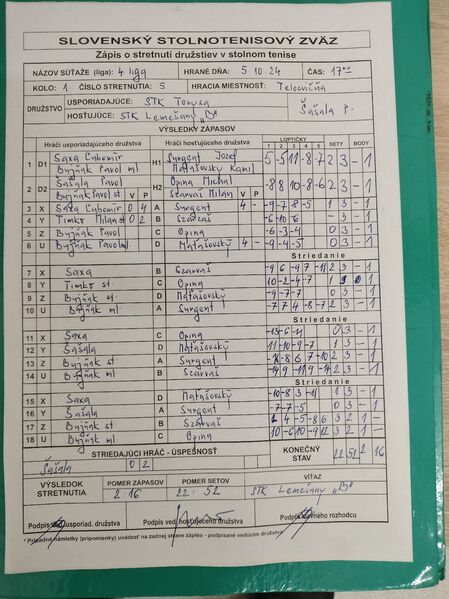 SLOVENSKÝ STOLNOTENISOVÝ ZVÄZ
Zápis o stretnutí družstiev v stolnom tenise
NÁZOV SÚŤAŽE (liga): 4 liga HRANÉ DŇA: 5 10 24 ČAS: 17 00
KOLO: 1 ČÍSLO STRETNUTIA: 5 HRACIA MIESTNOSŤ: Telocvičňa
DRUŽSTVO USPORIADAJÚCE: STK Torysa Šašala P.
HOSŤUJÚCE: STK Lemešany "D"
VÝSLEDKY ZÁPASOV
Hráči usporiadajúceho družstva Hráči hosťujúceho družstva LOPTIČKY SETY BODY
1 2 3 4 5
1 D1 Saxa Ľubomír H1 Surgent Jozef 5 -5 11 -8 -7 2 3 - 1
Bujňák Pavol ml Maťašovský Kamil
2 D2 Šašala Pavol H2 Opina Michal -8 8 10 -8 -6 2 3 - 1
Bujňák Pavol V P Szarvaš Milan V P
3 X Saxa Ľubomír 0 4 A Surgent 4 - -9 -7 8 -5 1 3 - 1
4 Y Timko Milan st 0 2 B Szarvaš -6 -10 -6 - 3 - 1
5 Z Bujňák Pavol C Opina -6 -3 -4 0 3 - 1
6 U Bujňák Pavol ml D Maťašovský 4 - -9 -4 -5 0 3 - 1
Striedanie
7 X Saxa B Szarvaš -9 6 -9 7 -11 2 3 - 1
8 Y Timko st C Opina 10 -2 -4 -7 1 3 - 1
9 Z Bujňák st. D Maťašovský -9 -7 -7 0 3 - 1
10 U Bujňák ml A Surgent -7 7 4 -8 -7 2 3 - 1
Striedanie
11 X Saxa C Opina -13 -6 -11 0 3 - 1
12 Y Šašala D Maťašovský 11 -10 -9 -7 1 3 - 1
13 Z Bujňák st A Surgent -8 6 7 -10 2 3 - 1
14 U Bujňák ml B Szarvaš 9 -11 9 -4 2 3 - 1
Striedanie
15 X Saxa D Maťašovský -10 -8 3 -11 1 3 - 1
16 Y Šašala A Surgent -7 -7 -5 0 3 - 1
17 Z Bujňák st B Szarvaš 4 -5 -8 6 3 2 1 -
18 U Bujňák ml C Opina 10 -6 10 -9 12 3 2 1 -
STRIEDAJÚCI HRÁČ - ÚSPEŠNOSŤ KONEČNÝ STAV 22 52 2 16
Šašala 0 2
VÝSLEDOK STRETNUTIA POMER ZÁPASOV POMER SETOV VÍŤAZ
2 : 16 22 : 52 STK Lemešany "D"
Podpis ved. usporiad. družstva Podpis ved. hosťujúceho družstva Podpis hlavného rozhodcu
* Prípadné námietky (pripomienky) uvádzať na zadnej strane zápisu - podpísané vedúcim družstva